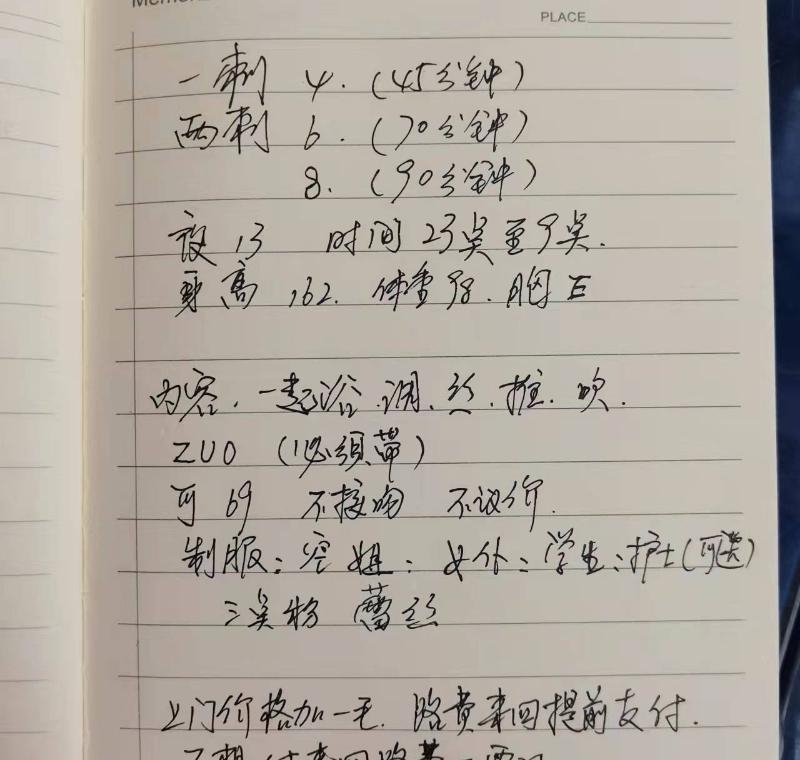 PLACE
一刺 4. (45分钟)
两刺 6. (70分钟)
8. (90分钟)
夜13 时间23点至9点.
身高162. 体重98. 胸E
内容. 一起浴.调.丝.推.吹.
ZUO (必须带)
可69 不接吻 不议价.
制服: 空姐: 女仆: 学生: 护士(可选)
三点粉 蕾丝
上门价格加一毛. 路费来回提前支付.